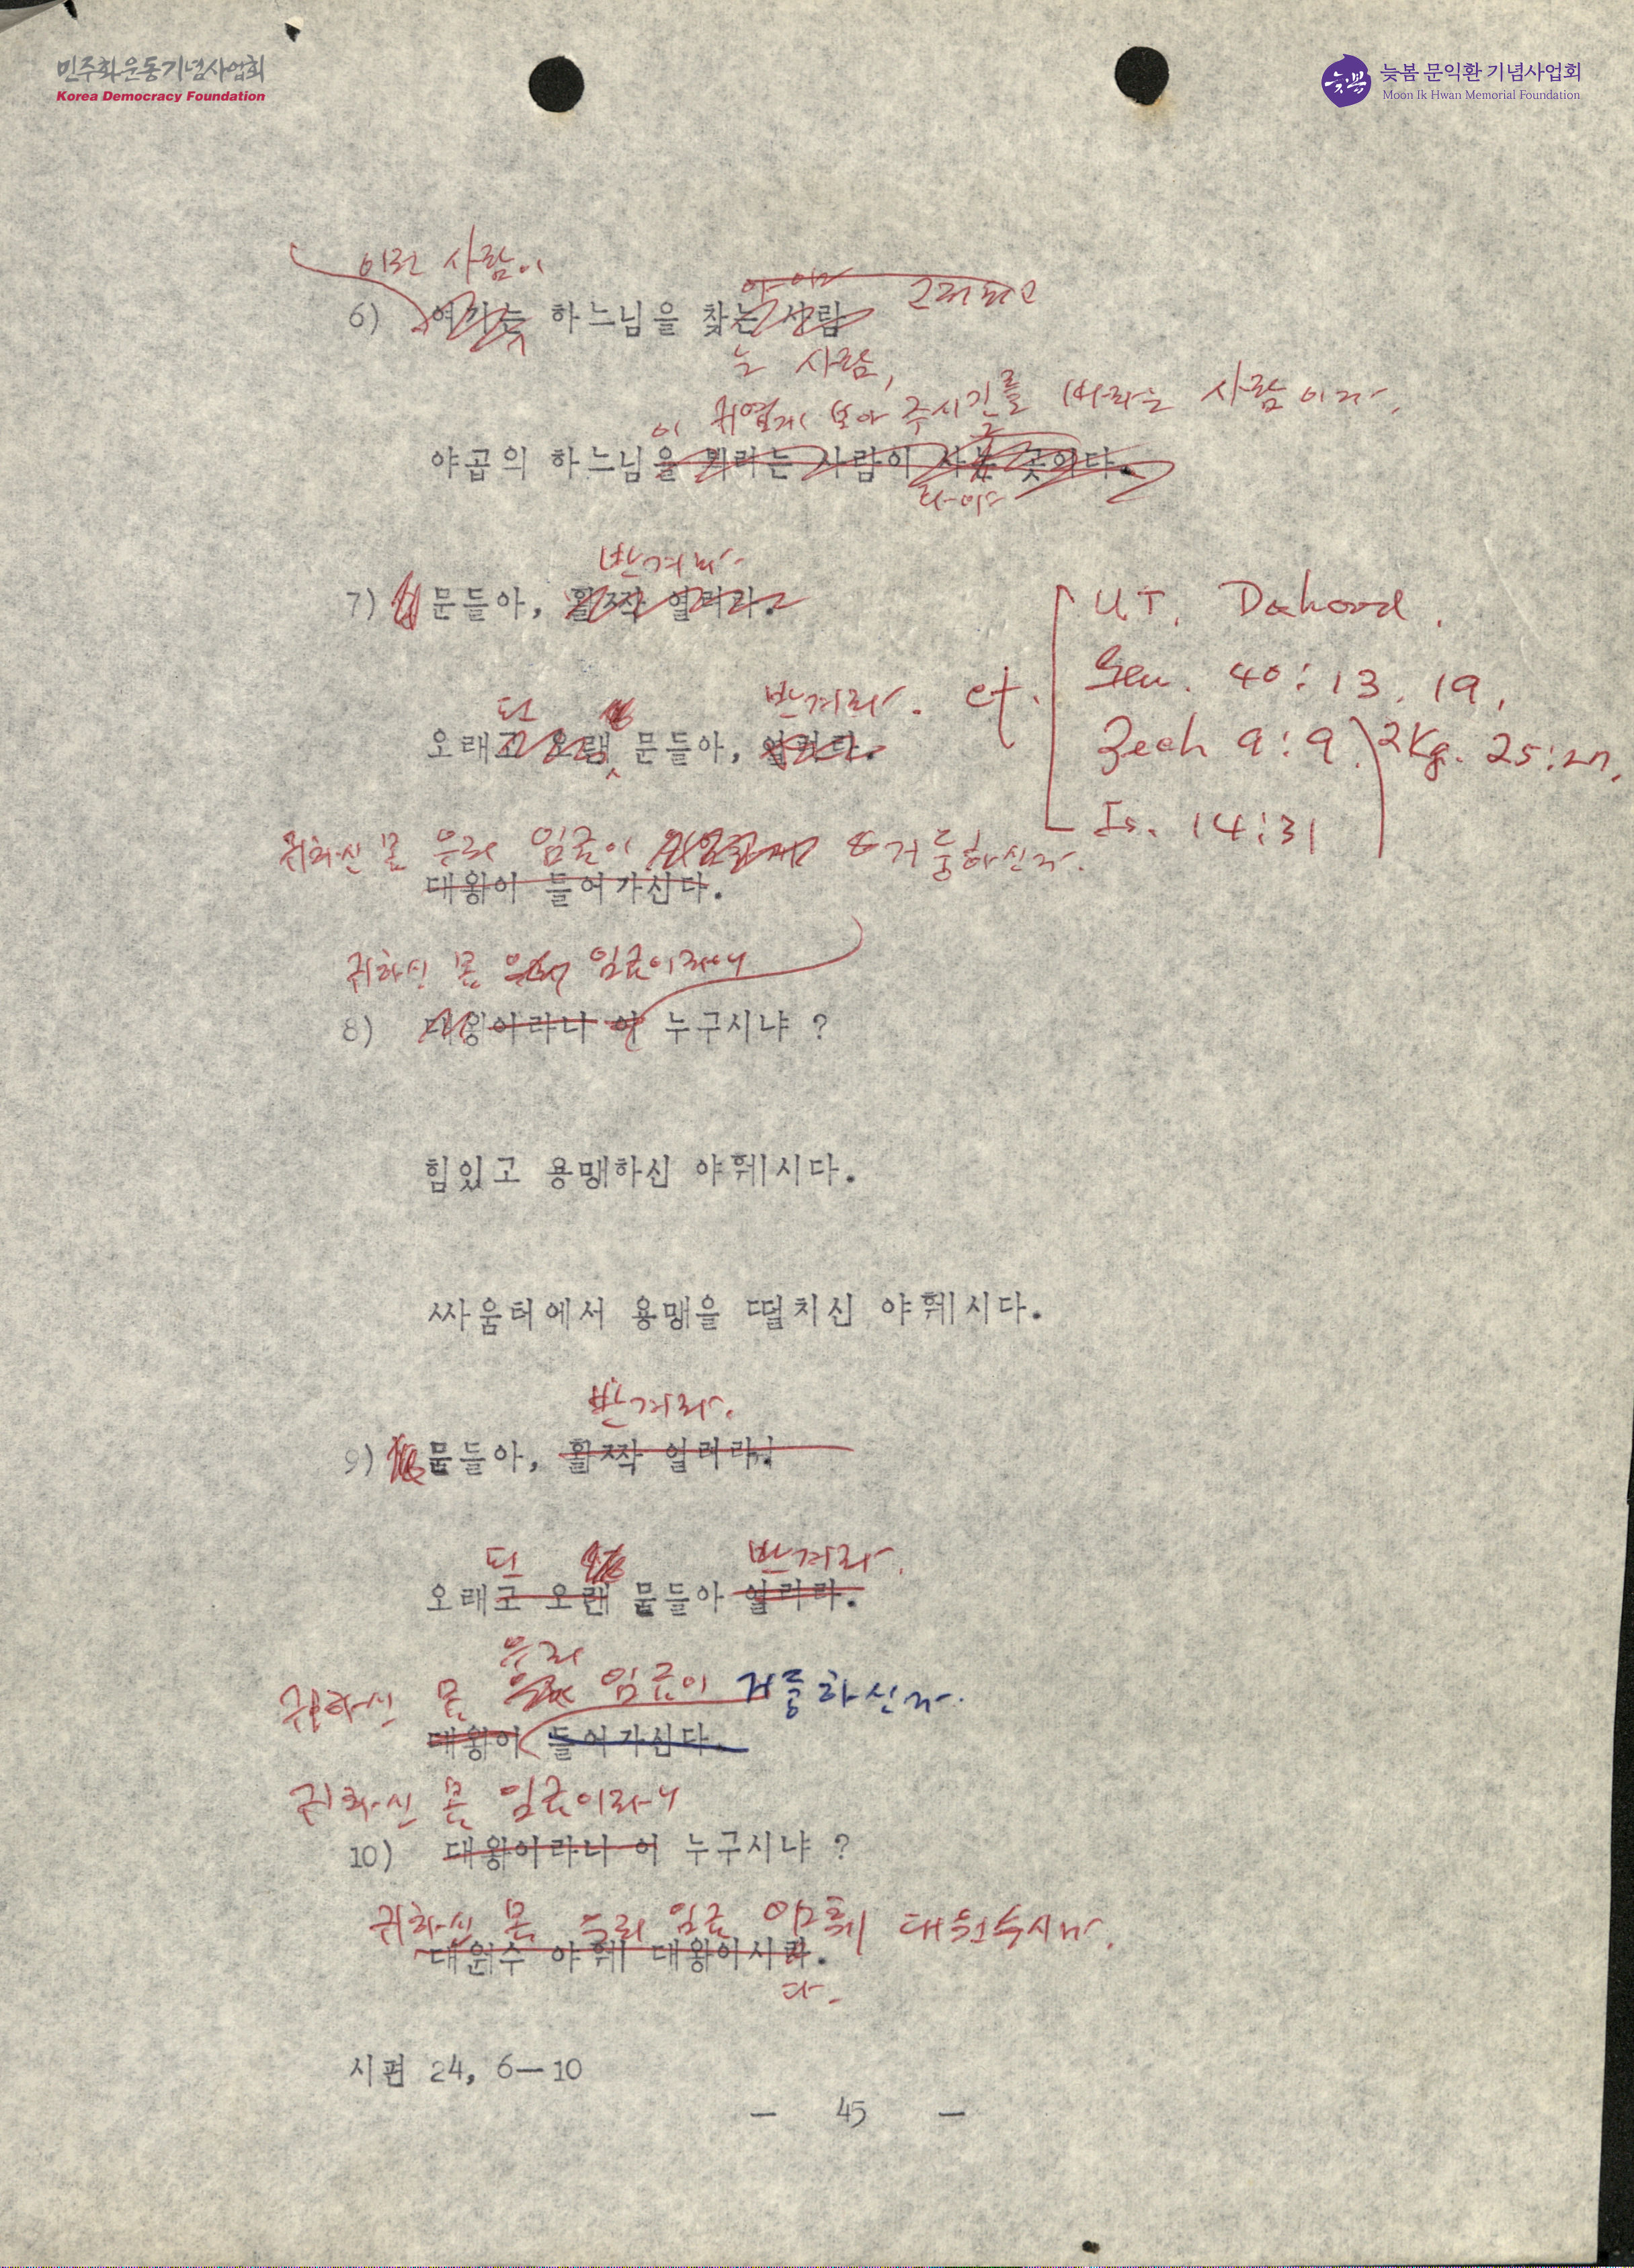 민주화운동기념사업회
Korea Democracy Foundation
늦봄 문익환 기념사업회
Moon Ik Hwan Memorial Foundation
이런 사람이
6) 여기는 하느님을 찾는 사람
는 사람,
이 귀엽게 보아 주시길를 바라는 사람이다.
야곱의 하느님을 뵈려는 사람이 사는 곳이다.
반겨라
7) 문들아, 활짝 열려라.
UT. Dahood.
Gen. 40:13, 19,
Zech 9:9. 2Kg. 25:27,
Is. 14:31
cf.
된 반겨라.
오래고 오랜 문들아, 열려라.
귀하신 몸 우리 임금이 거둥하신다.
대왕이 들어가신다.
귀하신 몸 임금이라니
8) 대왕이라니 이 누구시냐 ?
힘있고 용맹하신 야훼시다.
싸움터에서 용맹을 떨치신 야훼시다.
반겨라.
9) 문들아, 활짝 열려라.
된 반겨라.
오래고 오랜 문들아 열려라.
우리
귀하신 몸 임금이 거둥하신다.
대왕이 들어가신다.
귀하신 몸 임금이라니
10) 대왕이라니 이 누구시냐 ?
귀하신 몸 우리 임금 야훼 대원수시다.
대원수 야훼 대왕이시라.
다.
시편 24, 6—10
— 45 —